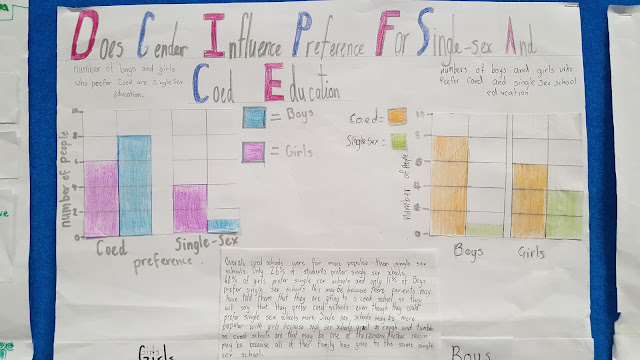 Does Gender Influence Preference For Single-sex And
Coed Education
number of boys and girls
who prefer Coed are Single Sex
education.
numbers of boys and girls who
Prefer Coed and single sex school
education
number of people
10
8
6
4
2
0
Coed
Single-Sex
preference
= Boys
= Girls
Coed=
Single sex=
Number of People
10
8
6
4
2
0
Boys
Girls
Overall coed schools were far more popular than single sex
schools. Only 26% of students prefer single sex schools.
40% of girls prefer single sex schools and only 11% of Boys
prefer single sex schools this may be because there parents may
have told them that they are going to a coed school so they
will say that they prefer coed schools even though they could
prefer single sex schools more. Single sex schools may be more
popular with girls because boys are
as coed schools are that may be one of the reasons. Another reason
may be because all of their family has gone to the same single
sex school.
Girls
Boys